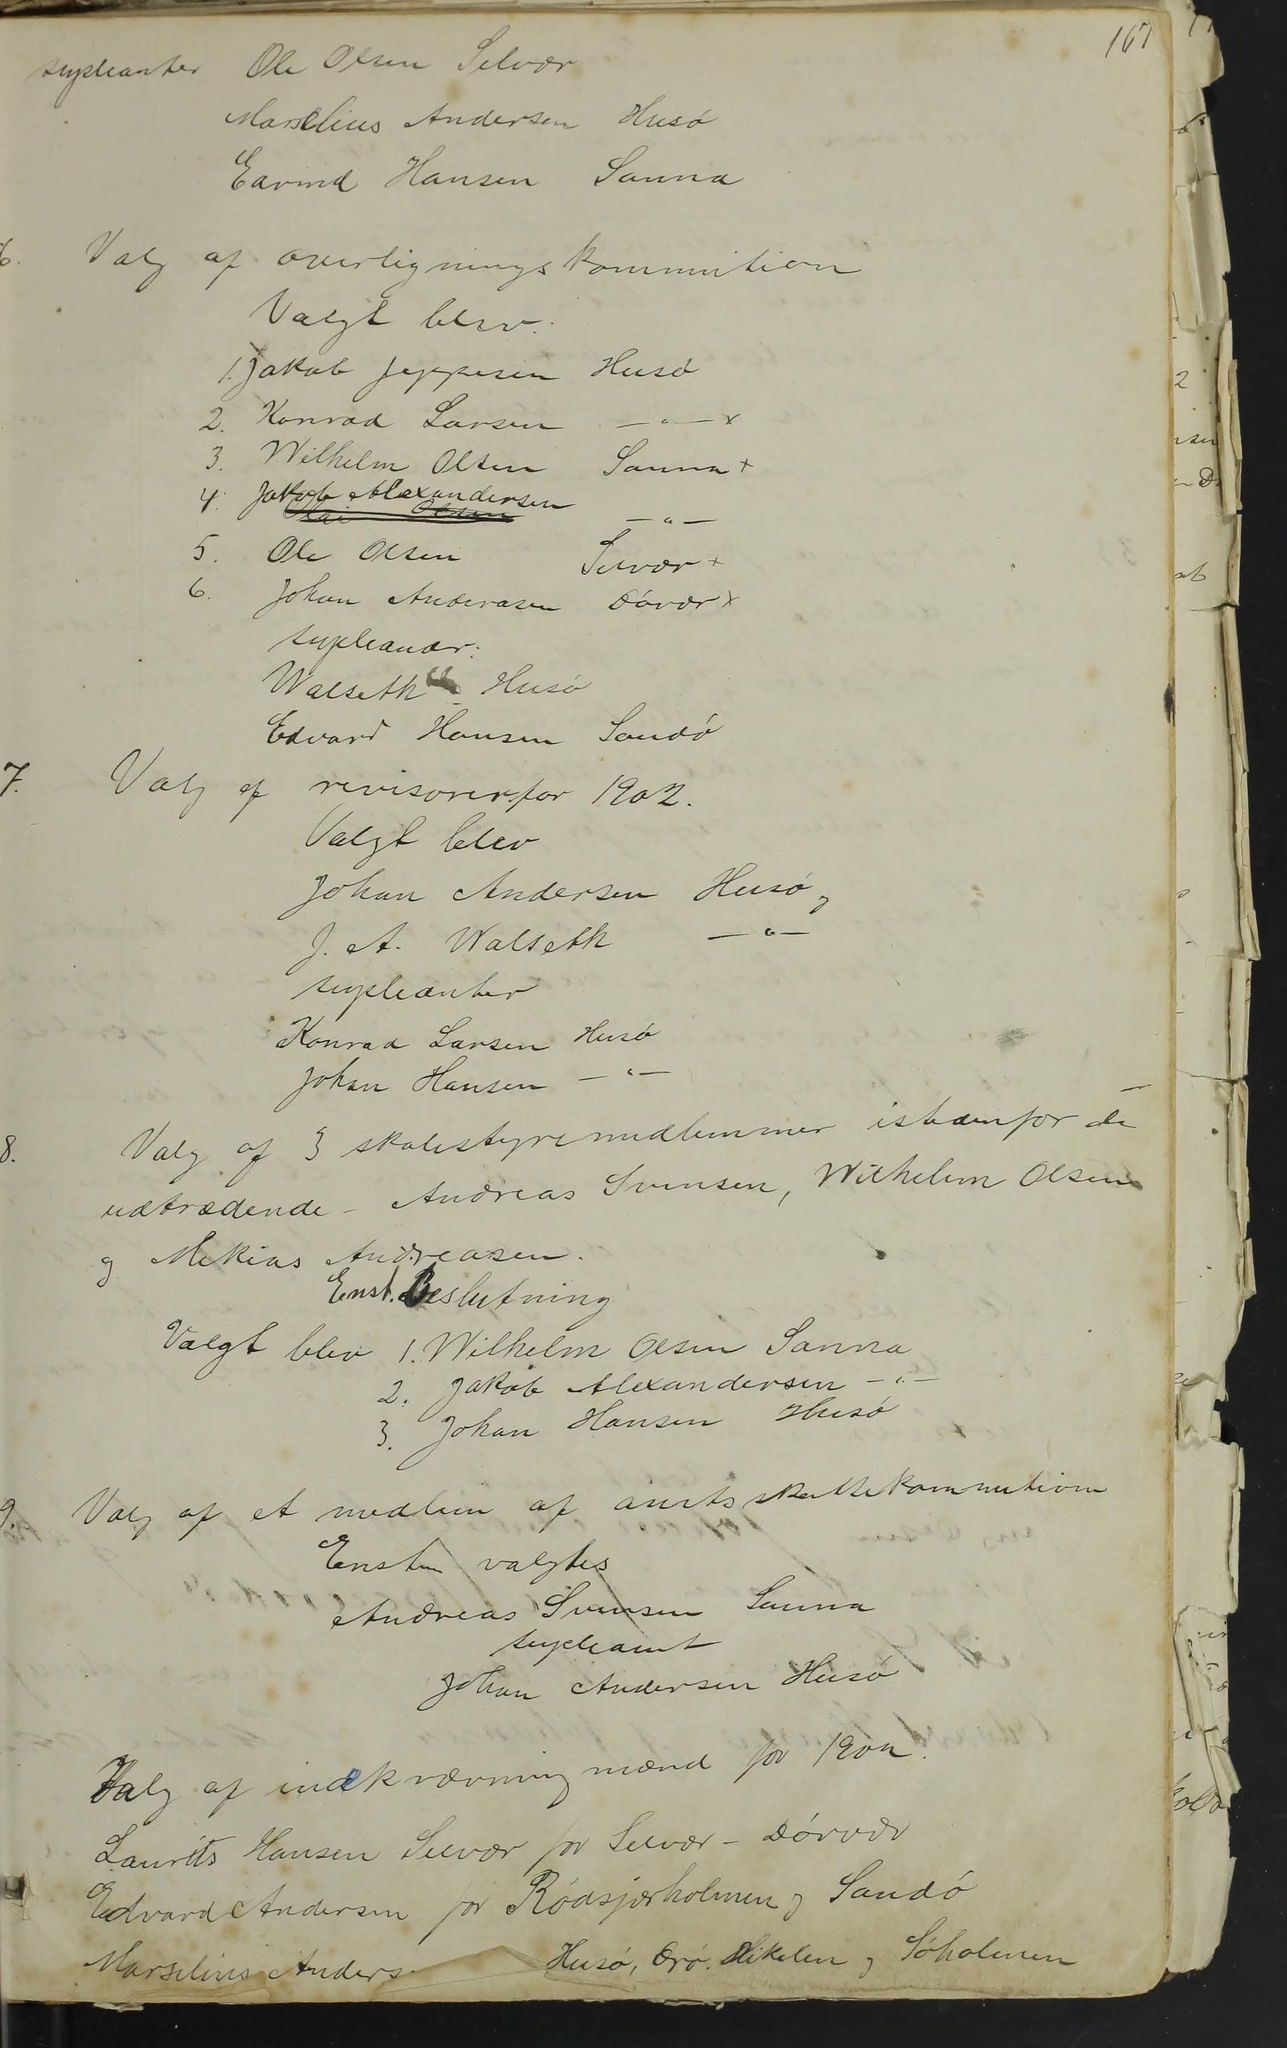 167
supleanter Ole Olsen Selvær
Marselius Andersen Husö
Edvind Hansen Sanna
6. Valg af overlignings kommition
Valgt blev.
1. Jakob Jeppesen Husö
2. Konrad Larsen —"— x
3. Wilhelm Olsen Sanna +
4. Jakob Alexandersen —"—
Olai Olsen
5. Ole Olsen Selvær +
6. Johan Anderasen Dörvær x
supleandr:
Walseth Husö
Edvard Hansen Sandö
7. Valg af revisorer for 1902.
Valgt blev
Johan Andersen Husö og
J. A. Walseth —"—
supleanter
Konrad Larsen Husö
Johan Hansen —"—
8. Valg af 3 skolestyremedlemmer istedenfor de
udtrædende - Andreas Svensen, Wilhelm Olsen
og Mekias Andreasen.
Enst. Beslutning
Valgt blev 1. Wilhelm Olsen Sanna
2. Jakob Alexandersen —"—
3. Johan Hansen Husö
9. Valg af et medlem af amtsskattekommitionen
Enstm valgtes
Andreas Svensen Sanna
supleant
Johan Andersen Husö
Valg af indkrævningmænd for 1902.
Laurits Hansen Selvær for Selvær - Dörvær
Edvard Andersen for Rödsjærholmen og Sandö
Marselius Anders Husö, Örö. Hikelen og Söholmen